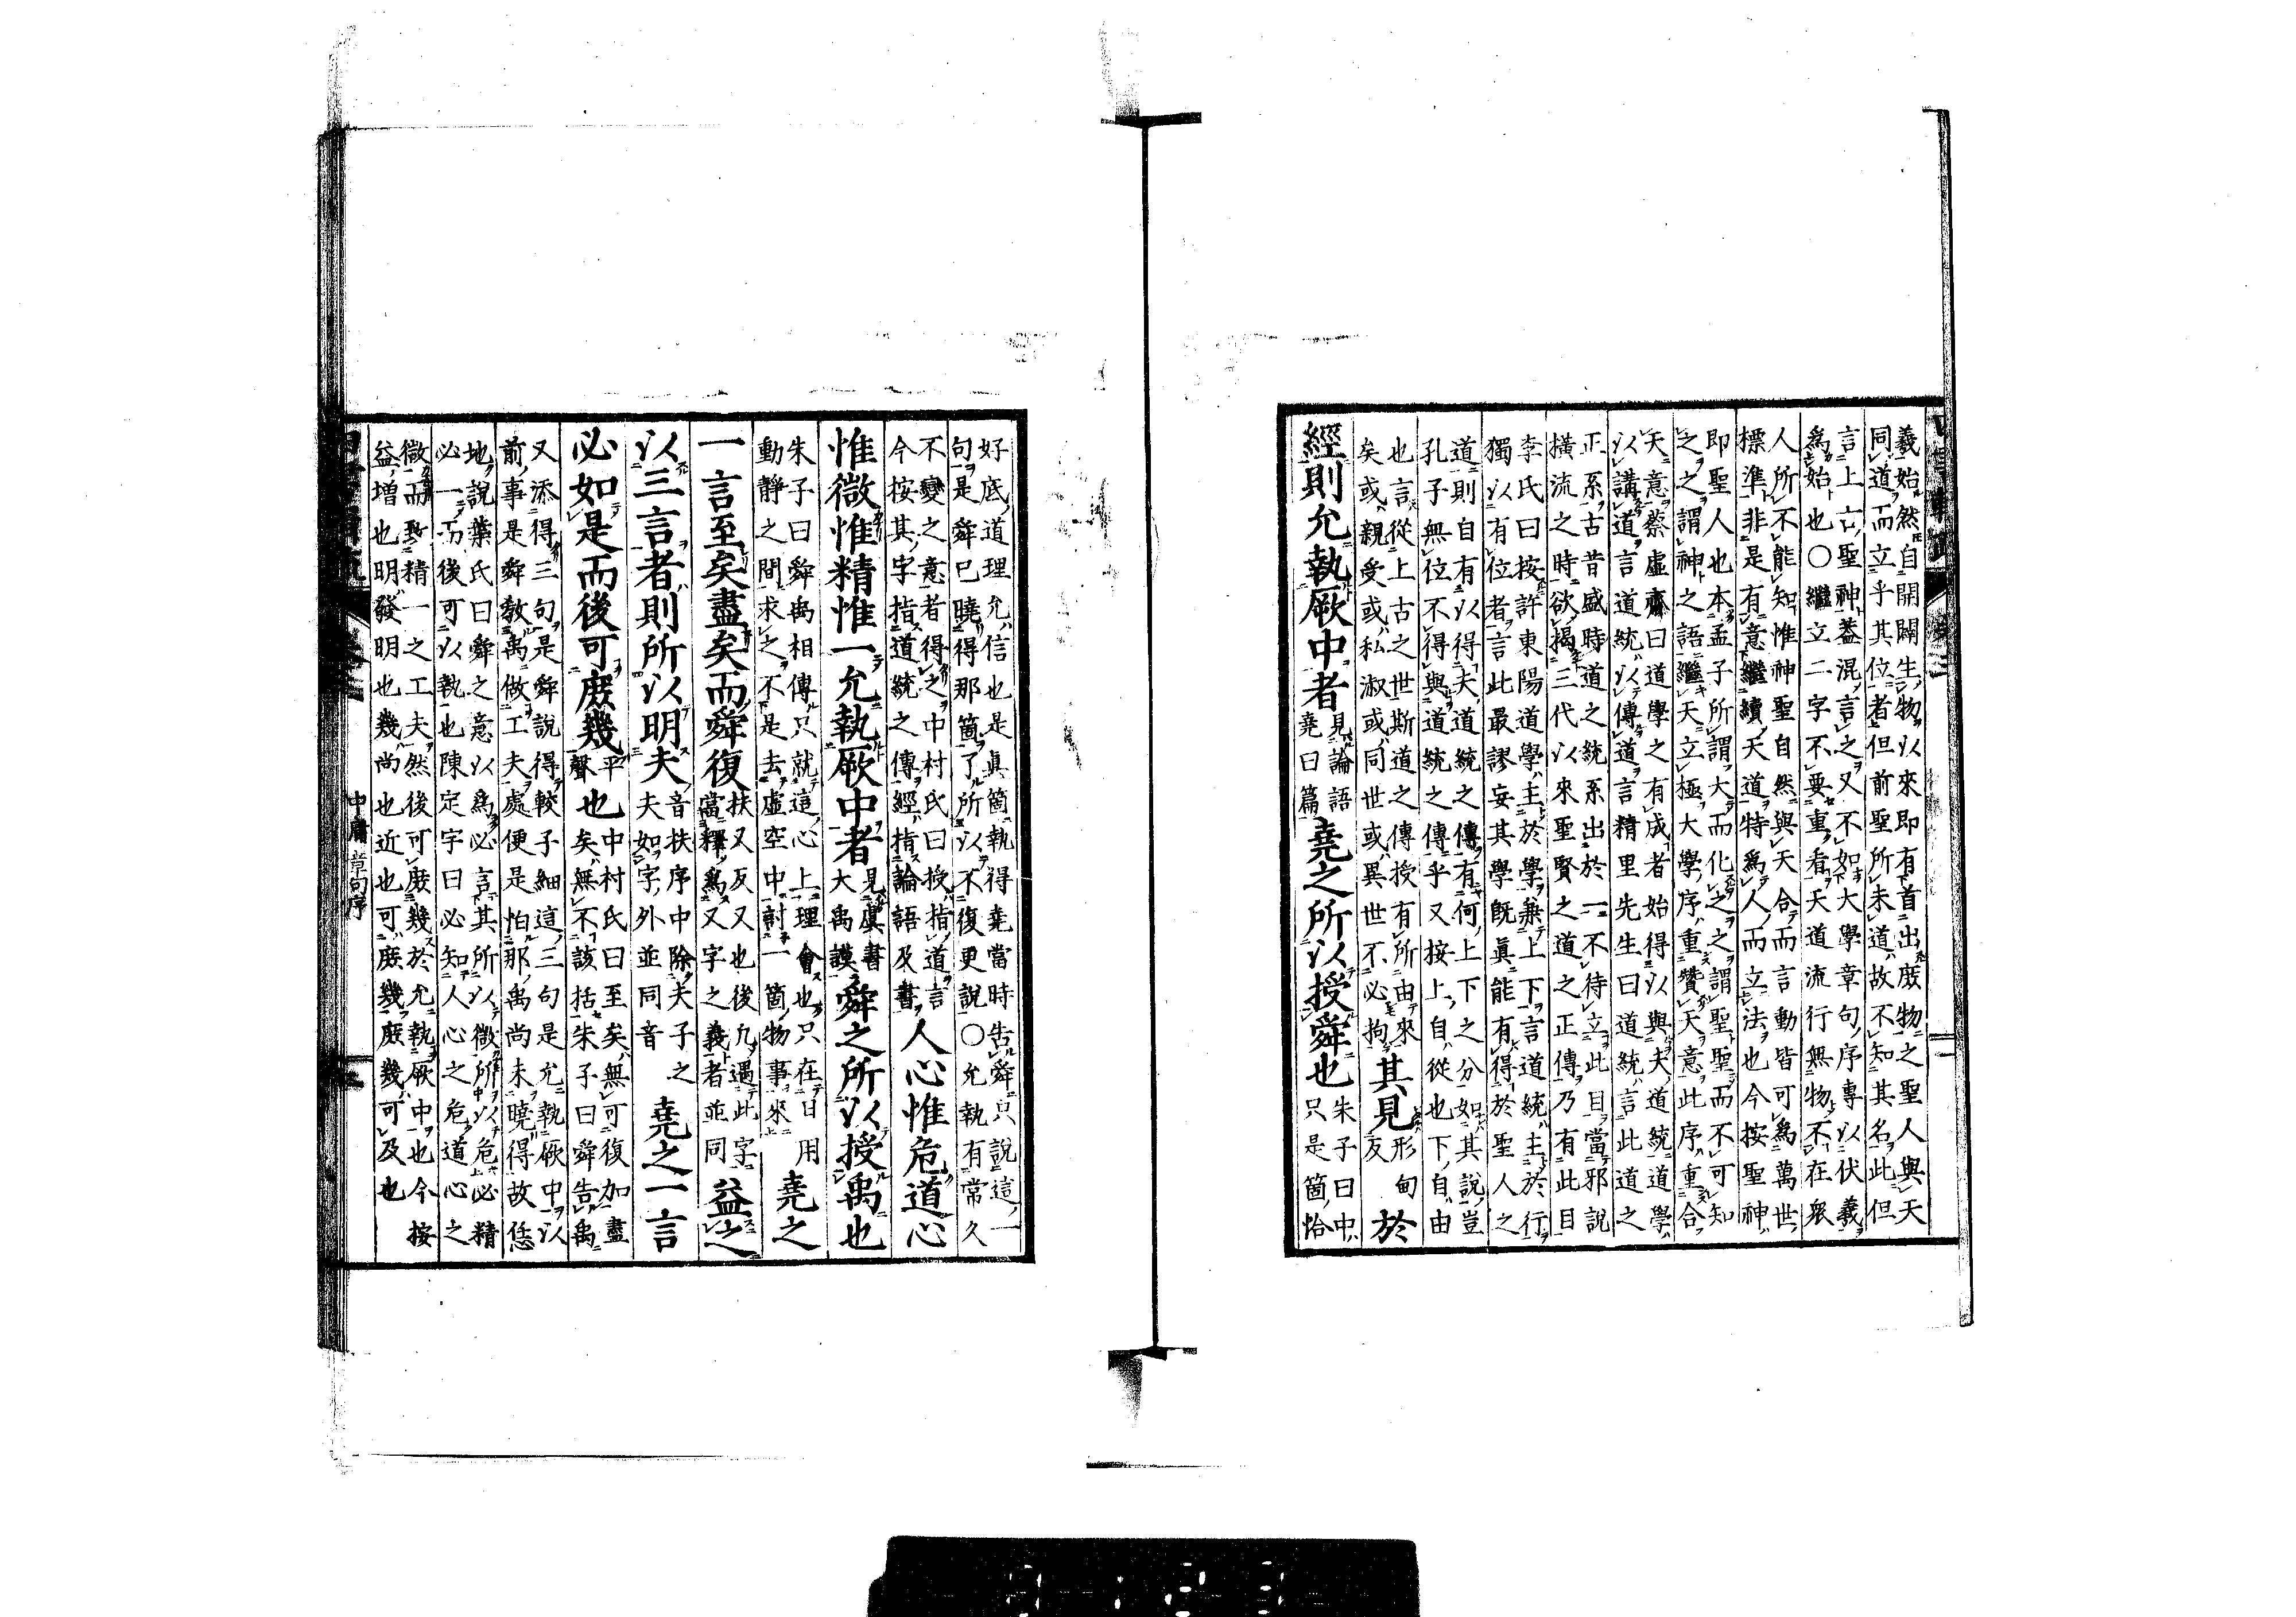 羲始然自開闢生物以來即有首出庶物之聖人與天
同道而立乎其位者但前聖所未道故不知其名此但
言上古聖神蓋混言之又不如大學章句序專以伏羲
爲始也○繼立二字不要重看天道流行無物不在衆
人所不能知惟神聖自然與天合而言動皆可爲萬世
標準非是有意繼續天道特爲人而立法也今按聖神
即聖人也本孟子所謂大而化之之謂聖聖而不可知
之之謂神之語繼天立極大學序重贊天意此序重合
天意蔡虛齋曰道學之有成者始得以與夫道統道學
以講道言道統以傳道言精里先生曰道統言此道之
正系古昔盛時道之統系出於一不待立此目當邪說
橫流之時欲揭三代以來聖賢之道之正傳乃有此目
李氏曰按許東陽道學主於學兼上下言道統主於行
獨以有位者言此最謬妄其學旣眞能有得於聖人之
道則自有以得夫道統之傳有何上下之分如其說豈
孔子無位不得與道統之傳乎又按上自從也下自由
也言從上古之世斯道之傳授有所由來
矣或親受或私淑或同世或異世不必拘
其見形甸反於
經則允執厥中者見論語堯曰篇堯之所以授舜也朱子曰中只是箇恰
好底道理允信也是眞箇執得堯當時告舜只說這一
句是舜已曉得那箇了所以不復更說○允執有常久
不變之意者得之中村氏曰授指道言
今按其字指道統之傳經指論語及書
人心惟危道心
惟微惟精惟一允執厥中者見虞書大禹謨舜之所以授禹也
朱子曰舜禹相傳只就這心上理會也只在日用
動靜之間求之不是去虛空中討一箇物事來
堯之
一言至矣盡矣而舜復扶又反又也後凡遇此字當釋爲又字之義者並同益之
以三言者則所以明夫音扶序中除夫子之夫如字外並同音堯之一言
必如是而後可庶幾平聲也中村氏曰至矣無可復加盡矣無不該括朱子曰舜告禹
又添得三句是舜說得較子細這三句是允執厥中以
前事是舜教禹做工夫處便是怕那禹尚未曉得故恁
地說葉氏曰舜之意以爲必言其所以微所以危必精
必一而後可以執也陳定宇曰必知人心之危道心之
微而致精一之工夫然後可庶幾於允執厥中也今按
益增也明發明也幾尚也近也可庶幾庶幾可及也
中庸章句序